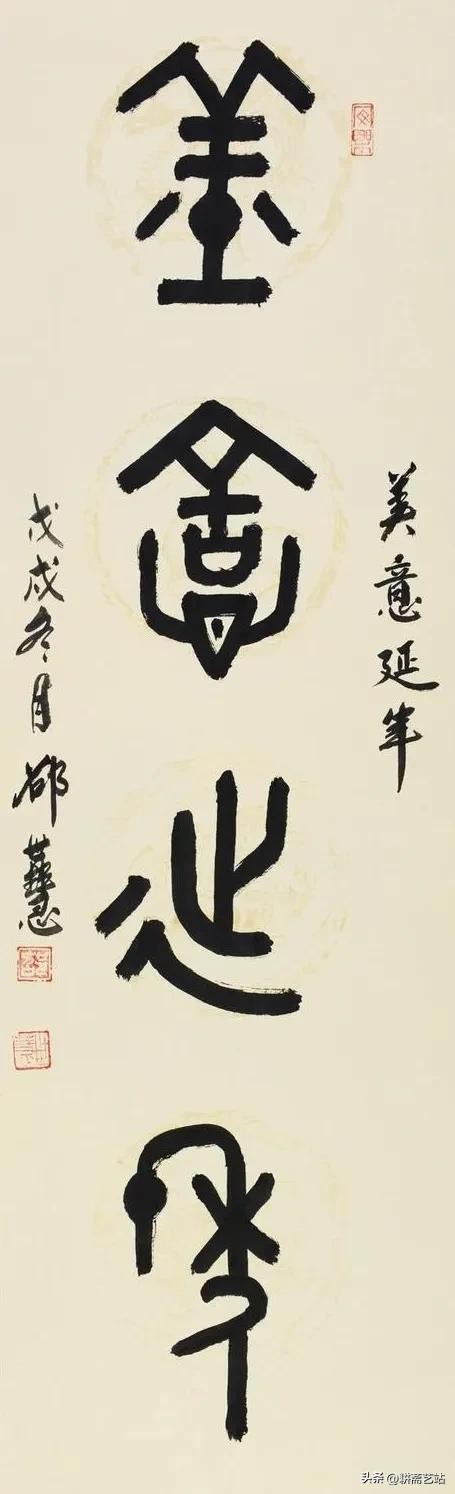 美意延年
美意延年
戊戌冬月邵
头条 @耕斋艺站